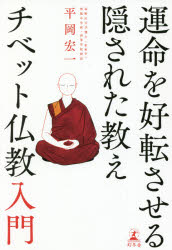 運命を好転させる
隠された教え
チベット仏教入門
平岡宏一
幻冬舎